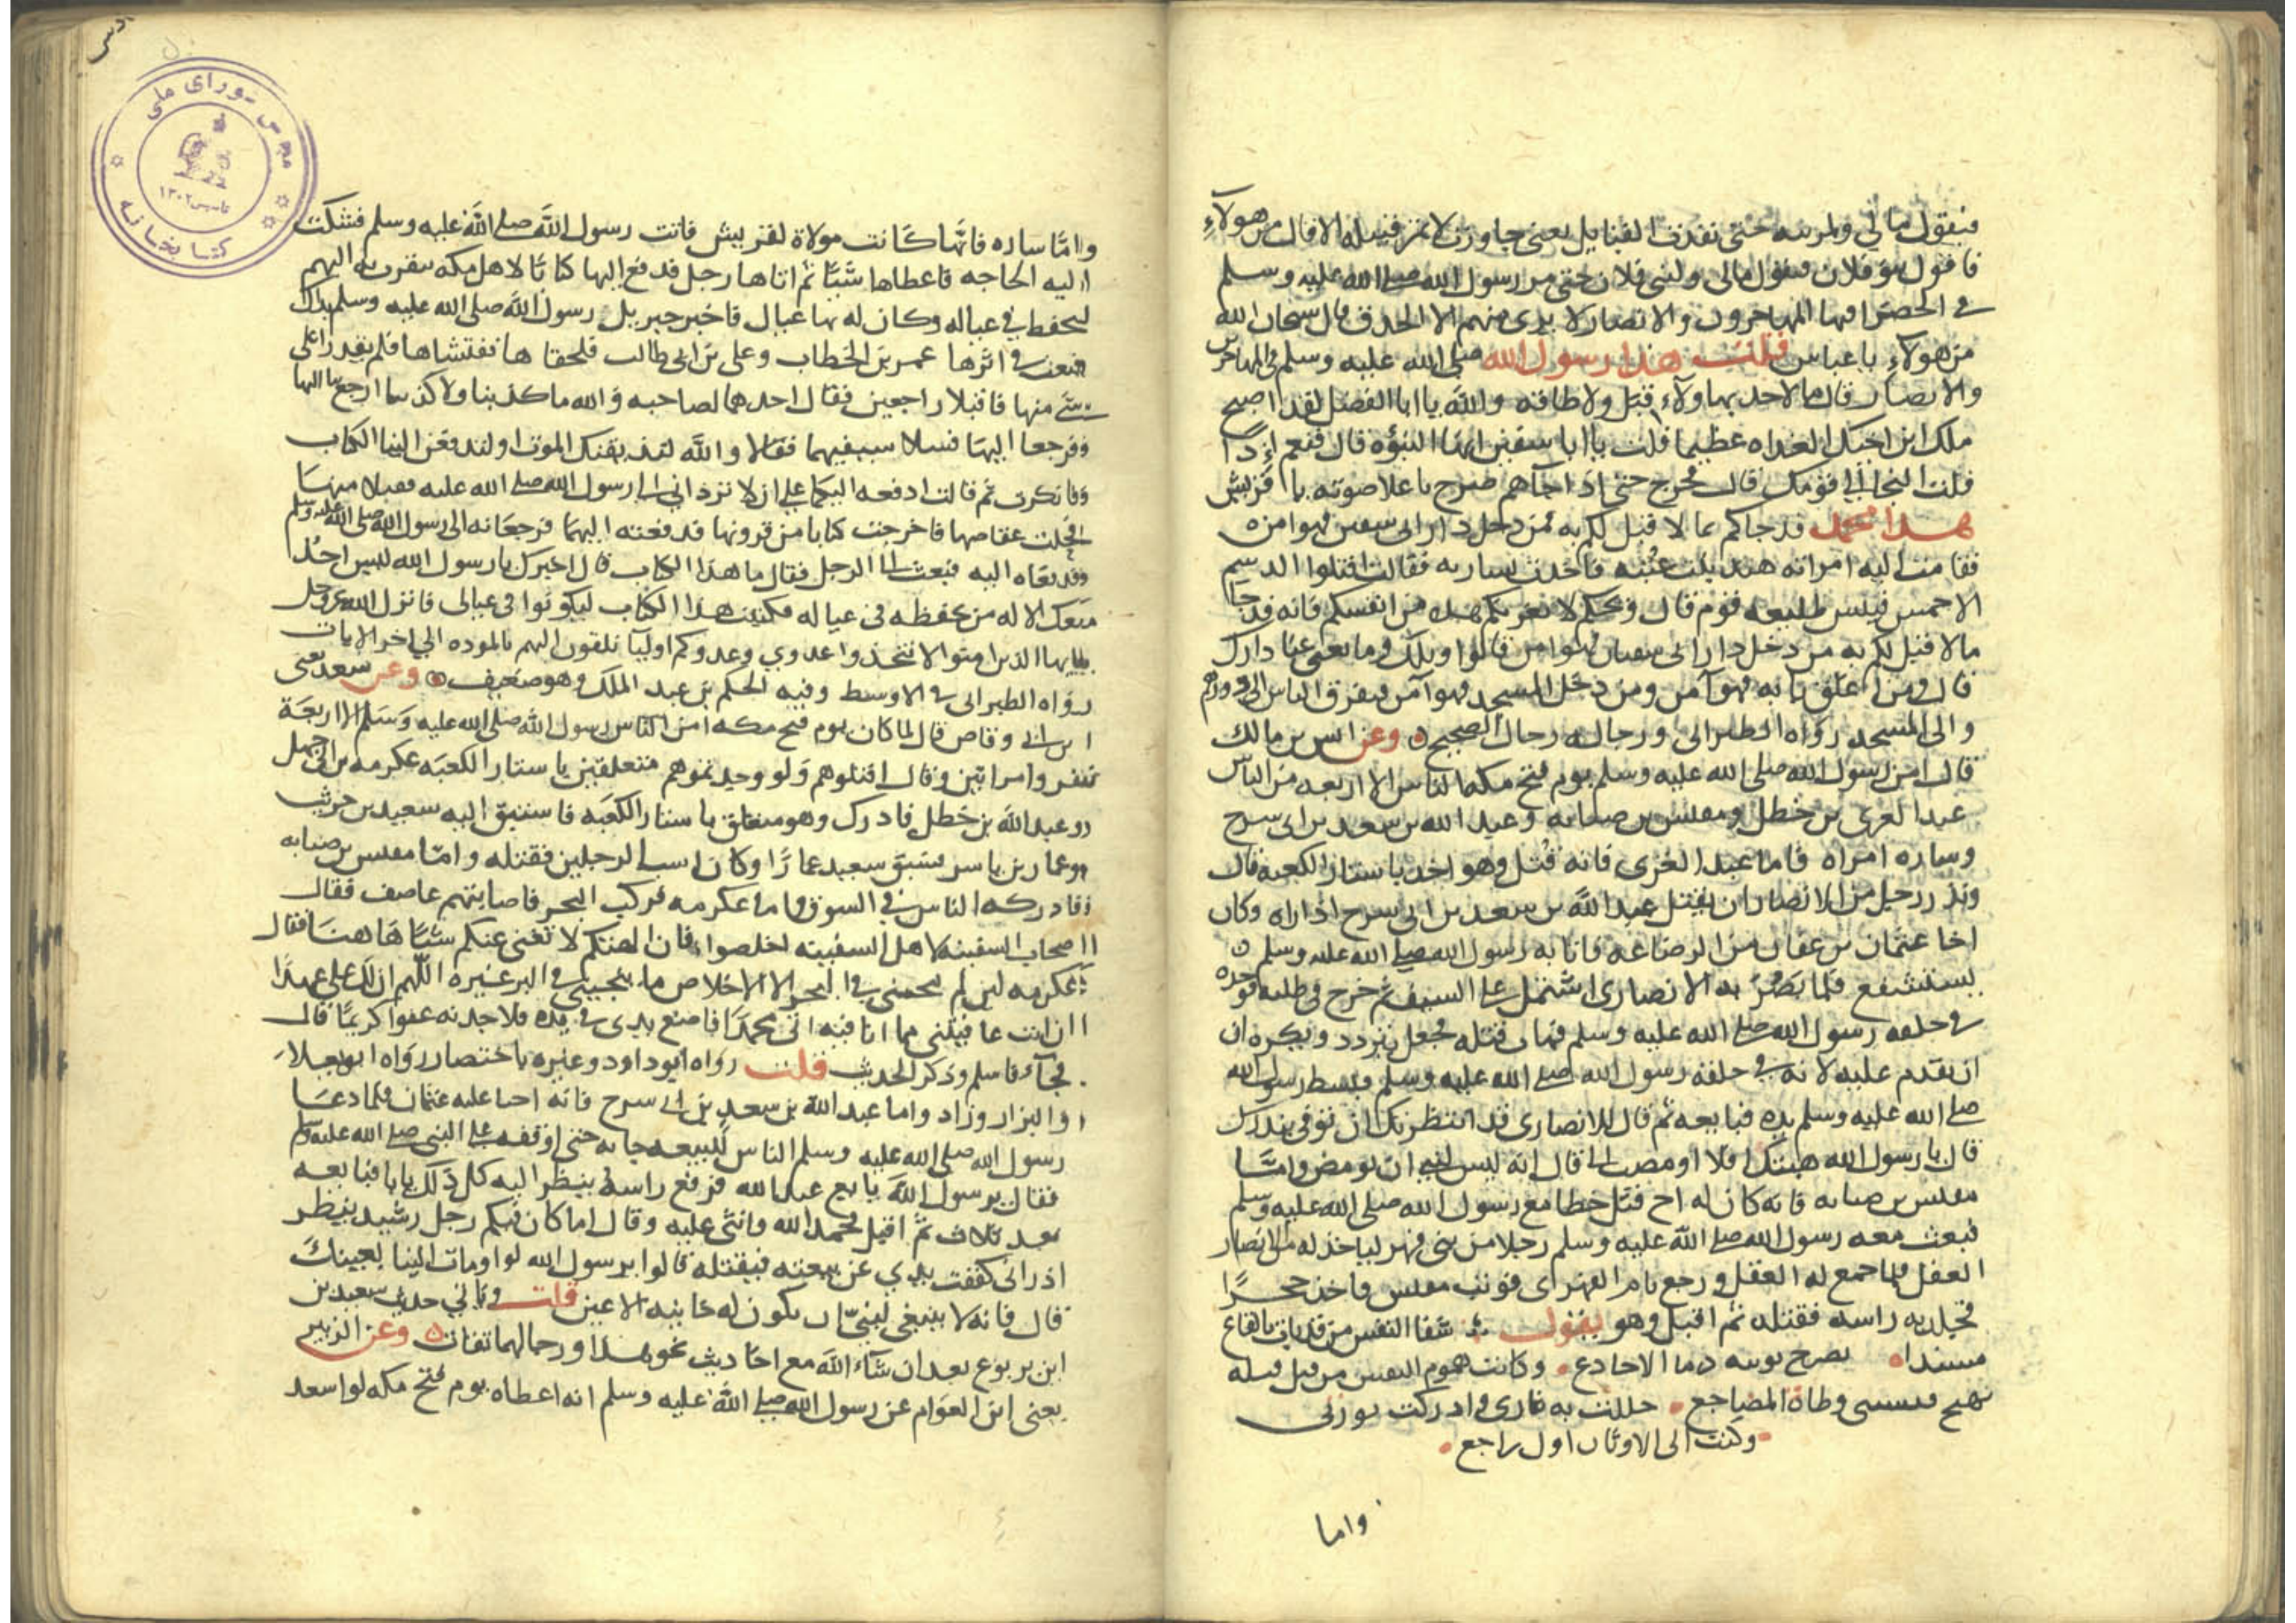 فيقول مالي ولمزينه حتى نفدت القبايل يعني جاوزت لا تمر قبيله الا قال من هولاء
فاقول بنو فلان فيقول مالي ولبني فلان حتى مر رسول الله صلى الله عليه وسلم
في الخضرا فيها المهاجرون والانصار لا يرى منهم الا الحدق قال سبحان الله
من هولاء يا عباس قلت هذا رسول الله صلى الله عليه وسلم في المهاجرين
والانصار قال ما لاحد بهاولاء قبل ولا طاقه والله يا ابا الفضل لقد اصبح
ملك ابن اخيك الغداه عظيما قلت يا ابا سفين انها النبوه قال فنعم اذا
قلت النجا الى قومك قال فخرج حتى اذا جاهم صرخ باعلا صوته يا قريش
هذا محمد قد جاكم بما لا قبل لكم به فمن دخل دار ابي سفين فهو امن
فقامت اليه امراته هند بنت عتبه فاخذت بشاربه فقالت اقتلوا الدسم
الاحمس فبئس طليعه قوم قال ويحكم لا تغرنكم هذه من انفسكم فانه قد جا
ما لا قبل لكم به من دخل دار ابي سفيان فهو امن قالوا ويلك وما تغني عنا دارك
قال ومن اغلق بابه فهو آمن ومن دخل المسجد فهو آمن فتفرق الناس الى دورهم
والى المسجد رواه الطبراني ورجاله رجال الصحيح وعن انس بن مالك
قال امن رسول الله صلى الله عليه وسلم يوم فتح مكه الناس الا اربعه من الناس
عبد العزى بن خطل ومقيس بن صبابه وعبد الله بن سعد بن ابي سرح
وساره امراه فاما عبد العزى فانه قتل وهو اخذ باستار الكعبه قال
ونذر رجل من الانصار ان يقتل عبد الله بن سعد بن ابي سرح اذا راه وكان
اخا عثمان بن عفان من الرضاعه فاتا به رسول الله صلى الله عليه وسلم
يستشفع فلما بصر به الانصاري اشتمل على السيف ثم خرج في طلبه فوجده
في حلقه رسول الله صلى الله عليه وسلم فهاب قتله فجعل يتردد ويكره ان
ان يقدم عليه لانه في حلقه رسول الله صلى الله عليه وسلم فبسط رسول الله
صلى الله عليه وسلم يده فبايعه ثم قال للانصاري قد انتظرتك ان توفي بنذرك
قال يا رسول الله هبتك افلا اومضت الي قال انه ليس لنبي ان يومض واما
مقيس بن صبابه فانه كان له اخ قتل خطا مع رسول الله صلى الله عليه وسلم
فبعث معه رسول الله صلى الله عليه وسلم رجلا من بني فهر لياخذ له من الانصار
العقل فلما جمع له العقل ورجع نام الفهري فوثب مقيس فاخذ حجرا
فجلد به راسه فقتله ثم اقبل وهو يقول شفا النفس من قد بات بالقاع
مسندا يضرج ثوبيه دما الاخادع وكانت هموم النفس من قبل قتله
تهيج فتنسيني وطاة المضاجع حللت به ثاري وادركت ثورتي
وكنت الى الاوثان اول راجع
واما
واما ساره فانها كانت مولاة لقريش فاتت رسول الله صلى الله عليه وسلم فشكت
اليه الحاجه فاعطاها شيئا ثم اتاها رجل فدفع اليها كتابا لاهل مكه يتقرب به اليهم
ليحفظ في عياله وكان له بها عيال فاخبر جبريل رسول الله صلى الله عليه وسلم بذلك
فبعث في اثرها عمر بن الخطاب وعلي بن ابي طالب فلحقاها ففتشاها فلم يقدرا على
شيء منها فاقبلا راجعين فقال احدهما لصاحبه والله ما كذبنا ولا كذبنا ارجع بنا اليها
فرجعا اليها فسلا سيفيهما فقالا والله لنذيقنك الموت او لتدفعن الينا الكتاب
فانكرت ثم قالت ادفعه اليكما على ان لا ترداني الى رسول الله صلى الله عليه فقبلا منها
فحلت عقاصها فاخرجت كتابا من قرونها فدفعته اليهما فرجعا به الى رسول الله صلى الله عليه وسلم
فدفعاه اليه فبعث الى الرجل فقال ما هذا الكتاب قال اخبرك يا رسول الله ليس احد
معك الا له من يحفظه في عياله فكتبت هذا الكتاب ليكونوا في عيالي فانزل الله عز وجل
يايها الذين امنوا لا تتخذوا عدوي وعدوكم اوليآ تلقون اليهم بالموده الى اخر الايات
رواه الطبراني في الاوسط وفيه الحكم بن عبد الملك وهو ضعيف وعن سعد يعني
ابن ابي وقاص قال لما كان يوم فتح مكه امن الناس رسول الله صلى الله عليه وسلم الا اربعة
نفر وامراتين وقال اقتلوهم ولو وجدتموهم متعلقين باستار الكعبه عكرمه بن ابي جهل
وعبد الله بن خطل فادرك وهو متعلق باستار الكعبه فاستبق اليه سعيد بن حريث
وعمار بن ياسر فسبق سعيد عمارا وكان اسب الرجلين فقتله واما مقيس بن صبابه
فادركه الناس في السوق واما عكرمه فركب البحر فاصابتهم عاصف فقال
اصحاب السفينه لاهل السفينه اخلصوا فان الهتكم لا تغني عنكم شيئا هاهنا فقال
عكرمه لين لم ينجني في البحر الا الاخلاص ما ينجيني في البر غيره اللهم ان لك علي عهدا
ان انت عافيتني مما انا فيه اتي محمدا فاضع يدي في يده فلاجدنه عفوا كريما قال
فجآء فاسلم وذكر الحديث قلت رواه ابو داود وغيره باختصار رواه ابو يعلا
والبزار وزاد واما عبد الله بن سعد بن ابي سرح فانه احبا عليه عثمان فلما دعا
رسول الله صلى الله عليه وسلم الناس للبيعه جا به حتى اوقفه على النبي صلى الله عليه وسلم
فقال يرسول الله بايع عبد الله فرفع راسه ينظر اليه كل ذلك يابا فبايعه
بعد ثلاث ثم اقبل فحمد الله واثنى عليه وقال اما كان فيكم رجل رشيد ينظر
اذ راني كففت يدي عن بيعته فيقتله قالوا يرسول الله لو اومات الينا بعينك
قال فانه لا ينبغي لنبي ان يكون له خاينه الاعين قلت وياتي حديث سعيد بن
ابن يربوع بعد ان شآء الله مع احاديث نحو هذا ورجالهما ثقات وعن الزبير
يعني ابن العوام عن رسول الله صلى الله عليه وسلم انه اعطاه يوم فتح مكه لوا سعد
مجلس شورای ملی
تاسیس ۱۳۰۲
کتابخانه